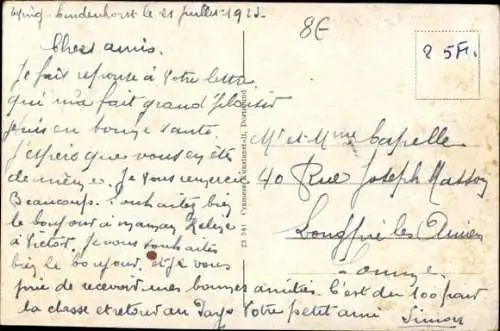 Lindenhorst le 21 juillet 1923.
8€
2 5 Fr.
Chers amis.
Je fait reponse à Votre lettre
qui m'a fait grand plaisir
Je suis en bonne santé.
J'espère que vous en ête
de même. Je vous remercie
Beaucoup. Souhaitez bien
le bonjour à maman
à Victor. Je vous souhaites
bien le bonjour. et je vous
prie de recevoir mes bonnes amitiés. C'est du 100 pour
la classe et retour au Pays. Votre petit ami
Simon
23 241 Cramers Kunstanstalt, Dortmund
Mr et Mme Capelle
40 Rue Joseph Masson
Longpré les Amiens
Somme.